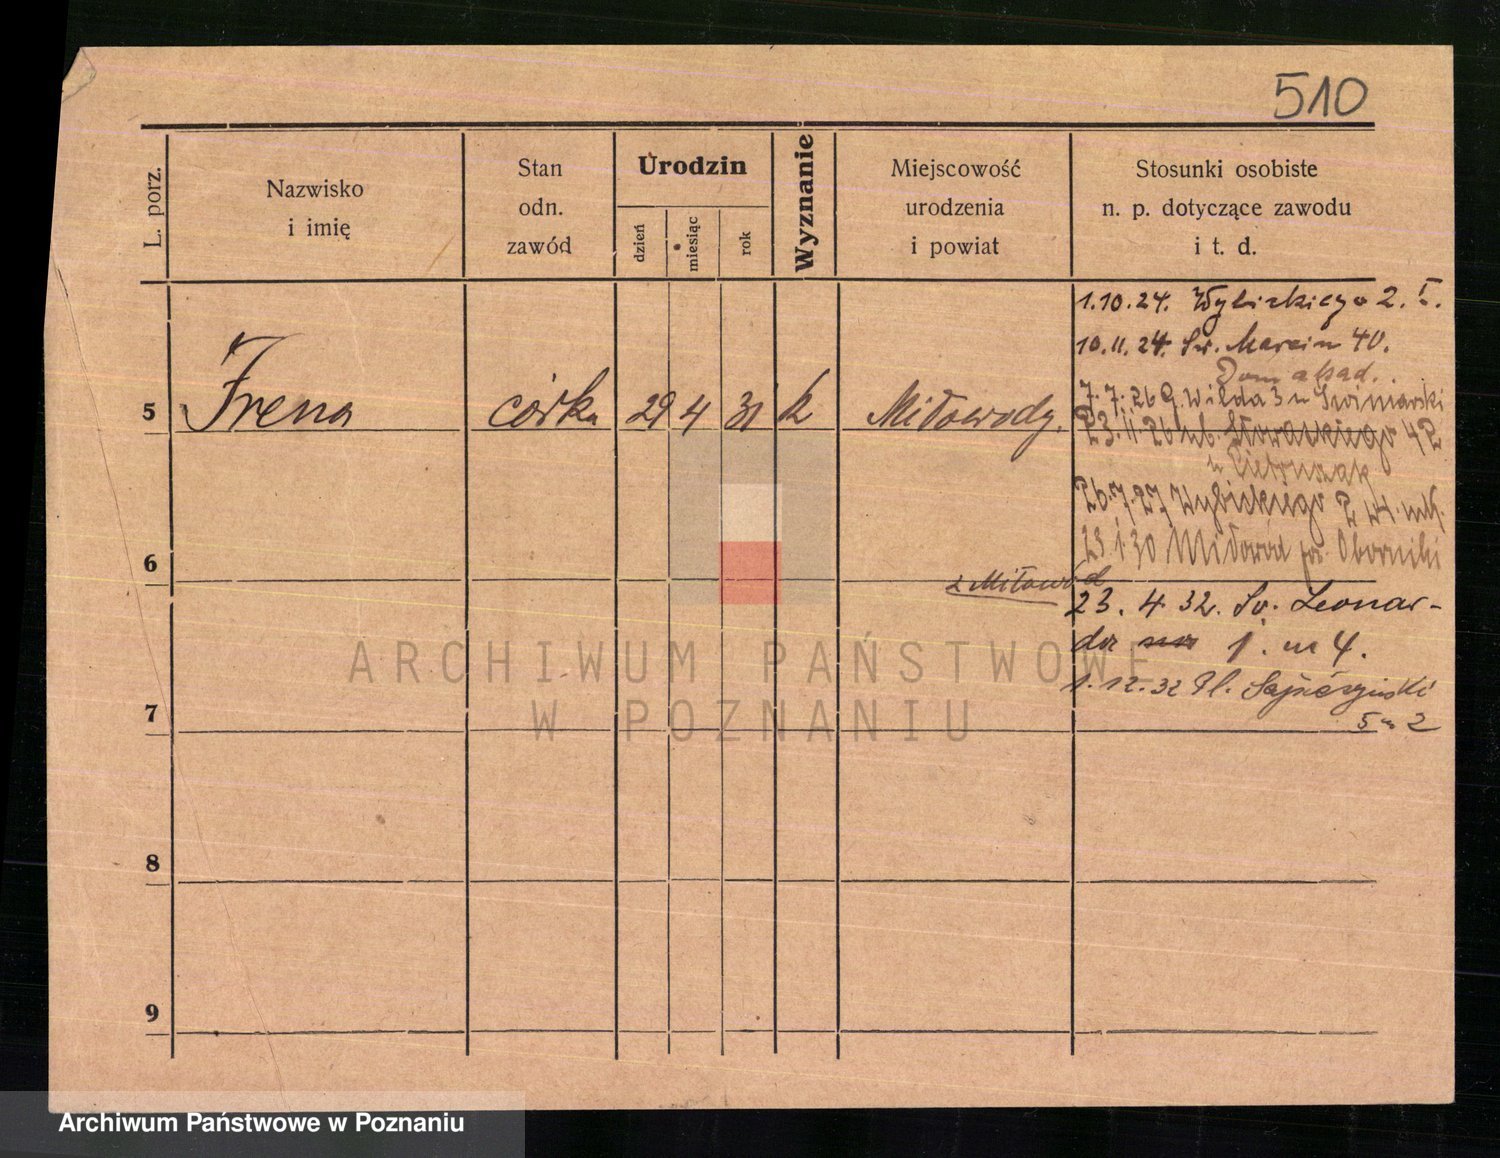 510
L. porz.
Nazwisko
i imię
Stan
odn.
zawód
Urodzin
dzień
miesiąc
rok
Wyznanie
Miejscowość
urodzenia
i powiat
Stosunki osobiste
n. p. dotyczące zawodu
i t. d.
1.10.24. Wybickiego 2. I.
10.11.24. Św. Marcin 40.
Dom akad.
7.7.26 G. Wilda 3 u
5 Irena córka 29 4 31 k Miłowody.
23.11.26 Słowackiego 42
u Pietruszak
26.7.27 Wybickiego 2 W. mk.
23.1.30 Miłowód pow. Oborniki
6
z Miłowód
23. 4. 32. Św. Leonar-
da 1. m 4.
1.12.32 Pl.
5 m 2
7
8
9
ARCHIWUM PAŃSTWOWE
W POZNANIU
Archiwum Państwowe w Poznaniu